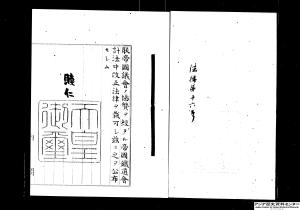 朕帝國議會ノ協贊ヲ經タル帝國鐵道會
計法中改正法律ヲ裁可シ茲ニ之ヲ公布
セシム
睦仁
天皇
御璽
法律第十六号
アジア歴史資料センター